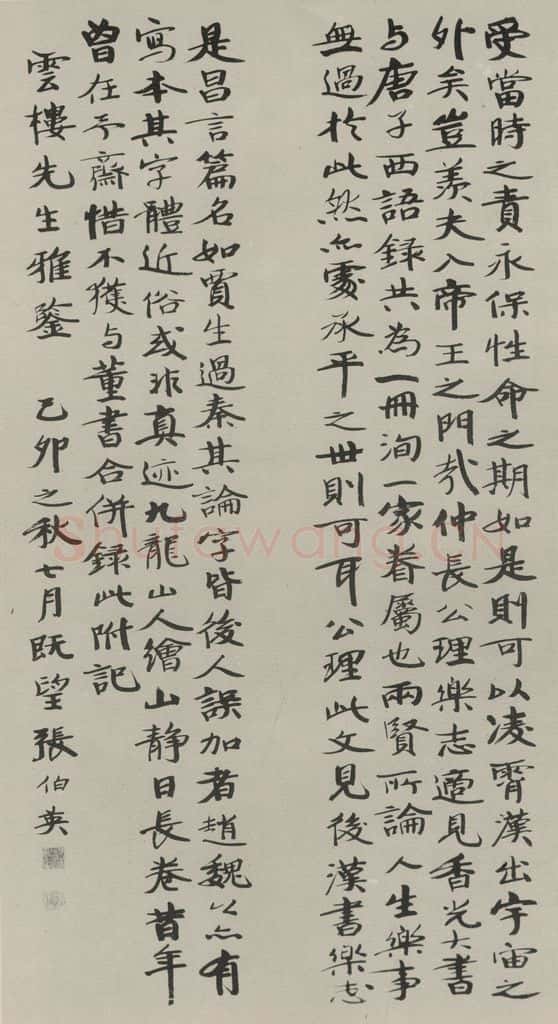 受當時之責永保性命之期如是則可以凌霄漢出宇宙之
外矣豈羨夫入帝王之門哉仲長公理樂志適見香光大書
与唐子西語錄共為一冊洵一家眷屬也兩賢所論人生樂事
無過於此然亦處承平之世則可耳公理此文見後漢書樂志
是昌言篇名如賈生過秦其論字皆後人誤加者趙魏公亦有
寫本其字體近俗或非真迹九龍山人繪山靜日長卷昔年
曾在予齋惜不獲与董書合併錄此附記
雲樓先生雅鑒 己卯之秋七月既望張伯英
Shufawang.CN